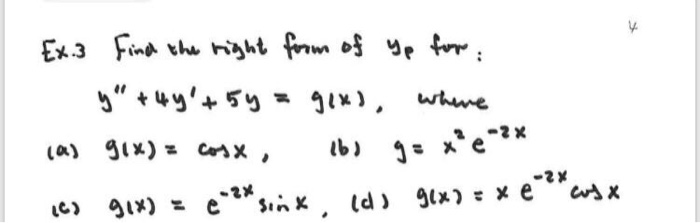 4
Ex.3 Find the right form of yp for:
y" + 4y' + 5y = g(x), where
(a) g(x) = cosx, (b) g = x²e⁻²ˣ
(c) g(x) = e⁻²ˣ sinx, (d) g(x) = x e⁻²ˣ cosx